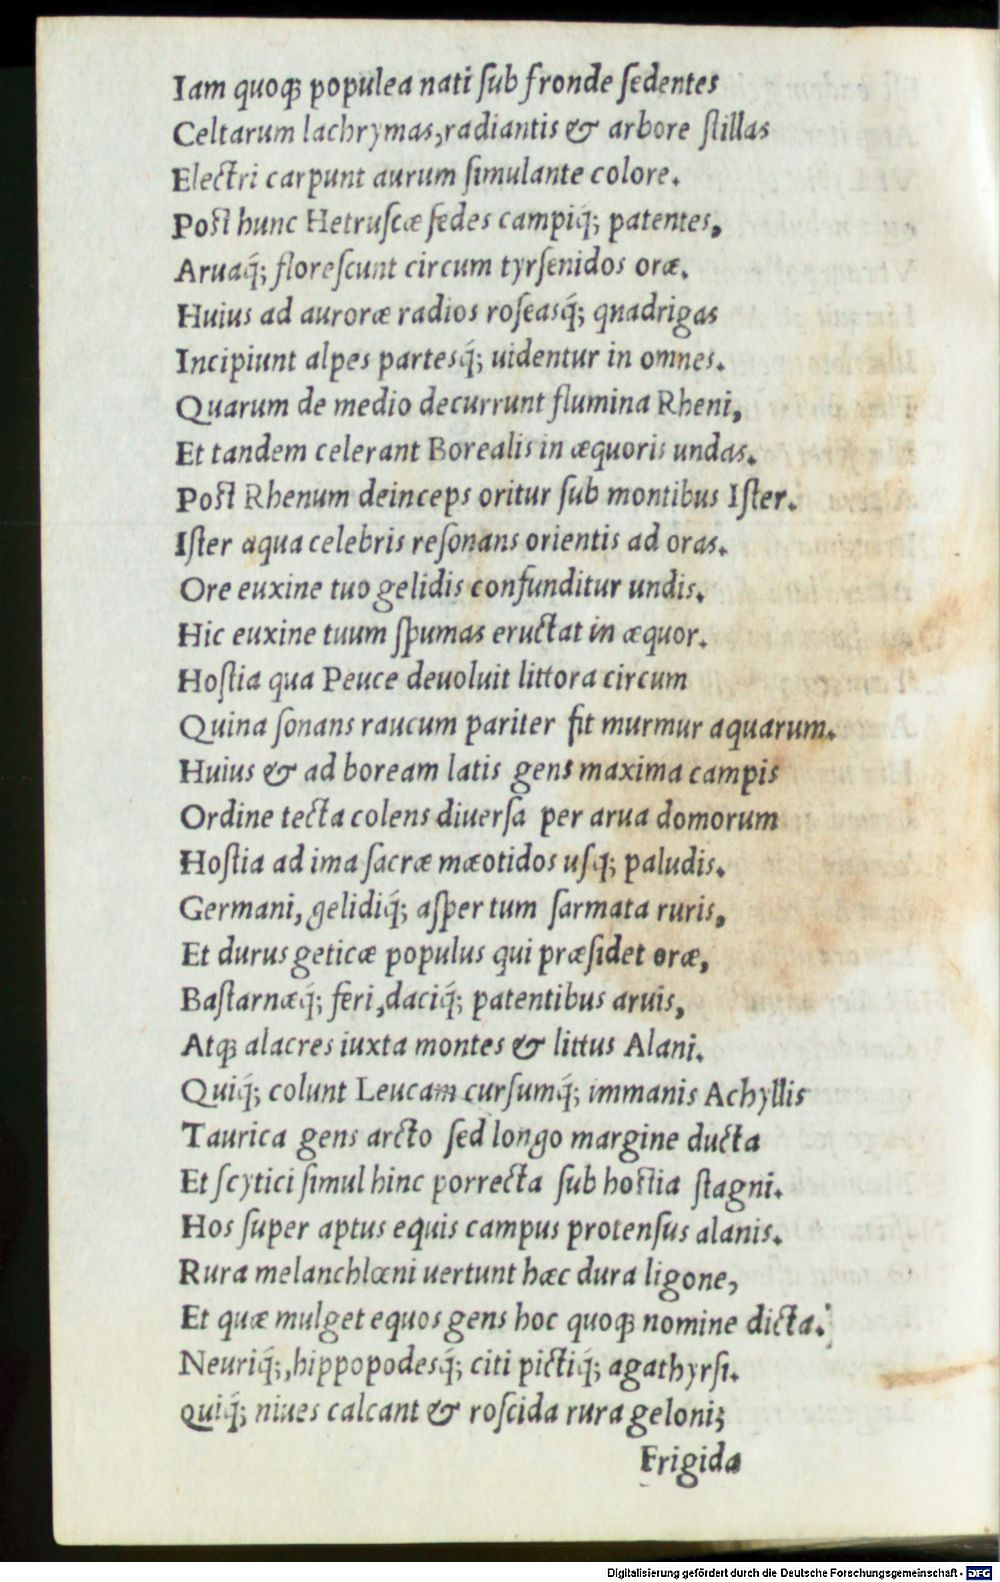 Iam quoqꝫ populea nati ſub fronde ſedentes
Celtarum lachrymas, radiantis & arbore ſtillas
Electri carpunt aurum ſimulante colore.
Poſt hunc Hetruſcæ ſedes campiq́; patentes,
Aruaq́; floreſcunt circum tyrſenidos oræ.
Huius ad auroræ radios roſeasq́; qnadrigas
Incipiunt alpes partesq́; uidentur in omnes.
Quarum de medio decurrunt flumina Rheni,
Et tandem celerant Borealis in æquoris undas.
Poſt Rhenum deinceps oritur ſub montibus Iſter.
Iſter aqua celebris reſonans orientis ad oras.
Ore euxine tuo gelidis confunditur undis.
Hic euxine tuum ſpumas eructat in æquor.
Hoſtia qua Peuce deuoluit littora circum
Quina ſonans raucum pariter fit murmur aquarum.
Huius & ad boream latis gens maxima campis
Ordine tecta colens diuerſa per arua domorum
Hoſtia ad ima ſacræ mæotidos uſq; paludis.
Germani, gelidiq́; aſper tum ſarmata ruris,
Et durus geticæ populus qui præſidet oræ,
Baſtarnæq́; feri, daciq́; patentibus aruis,
Atqꝫ alacres iuxta montes & littus Alani.
Quiq́; colunt Leucam curſumq́; immanis Achyllis
Taurica gens arcto ſed longo margine ducta
Et ſcytici ſimul hinc porrecta ſub hoſtia ſtagni.
Hos ſuper aptus equis campus protenſus alanis.
Rura melanchlœni uertunt hæc dura ligone,
Et quæ mulget equos gens hoc quoqꝫ nomine dicta.
Neuriq́;, hippopodesq́; citi pictiq́; agathyrſi.
quiq́; niues calcant & roſcida rura geloni;
Frigida
Digitalisierung gefördert durch die Deutsche Forschungsgemeinschaft - DFG